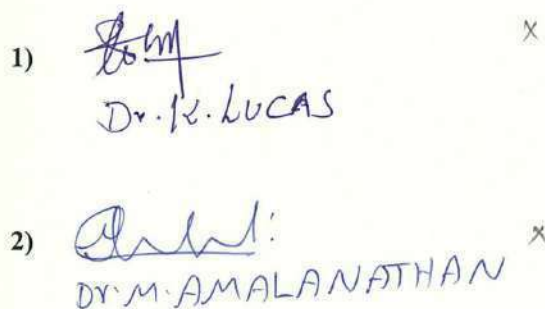 1)
Dr. K. LUCAS
2)
Dr. M. AMALANATHAN